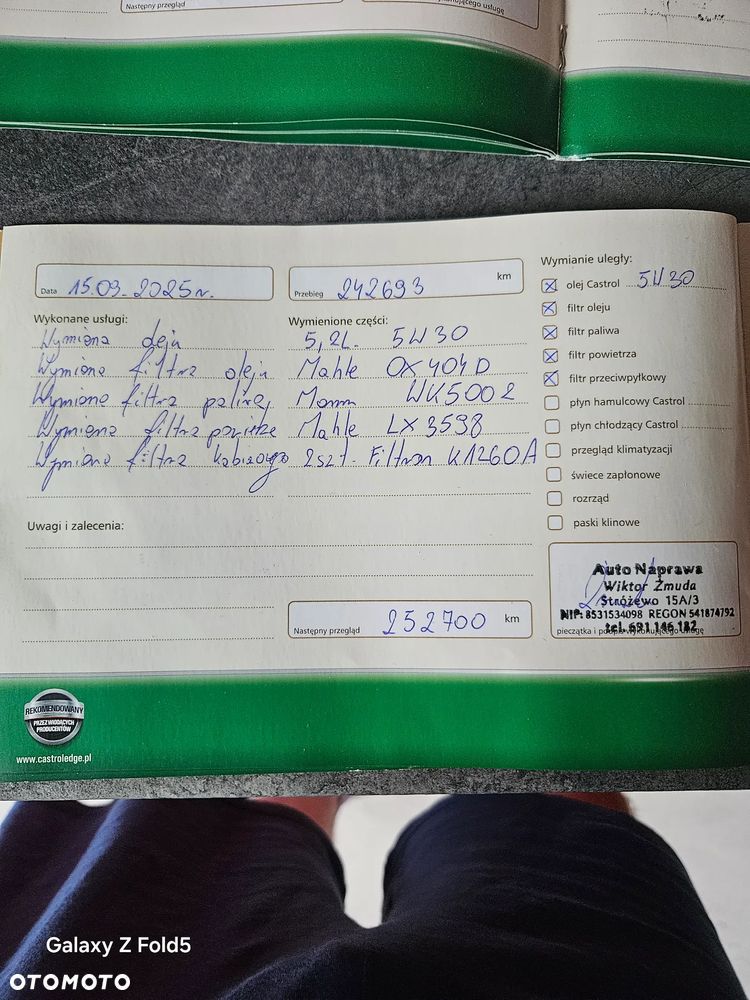 Następny przegląd
usługę
Data 15.03.2025r.
Przebieg 242693 km
Wymianie uległy:
olej Castrol 5W30
filtr oleju
filtr paliwa
filtr powietrza
filtr przeciwpyłkowy
płyn hamulcowy Castrol
płyn chłodzący Castrol
przegląd klimatyzacji
świece zapłonowe
rozrząd
paski klinowe
Wykonane usługi:
Wymienione części:
Wymiana oleju 5,2L. 5W30
Wymiana filtra oleju Mahle OX404D
Wymiana filtra paliwa Mann WK5002
Wymiana filtra Mahle LX3598
Wymiana filtra kabinowego 2szt. Filtron K1260A
Uwagi i zalecenia:
Następny przegląd 252700 km
Auto Naprawa
Wiktor Żmuda
Stróżewo 15A/3
NIP: 8531534098 REGON 541874792
tel. 691 146 182
pieczątka i podpis wykonującego usługę
REKOMENDOWANY
PRZEZ WIODĄCYCH
PRODUCENTÓW
www.castroledge.pl
Galaxy Z Fold5
OTOMOTO